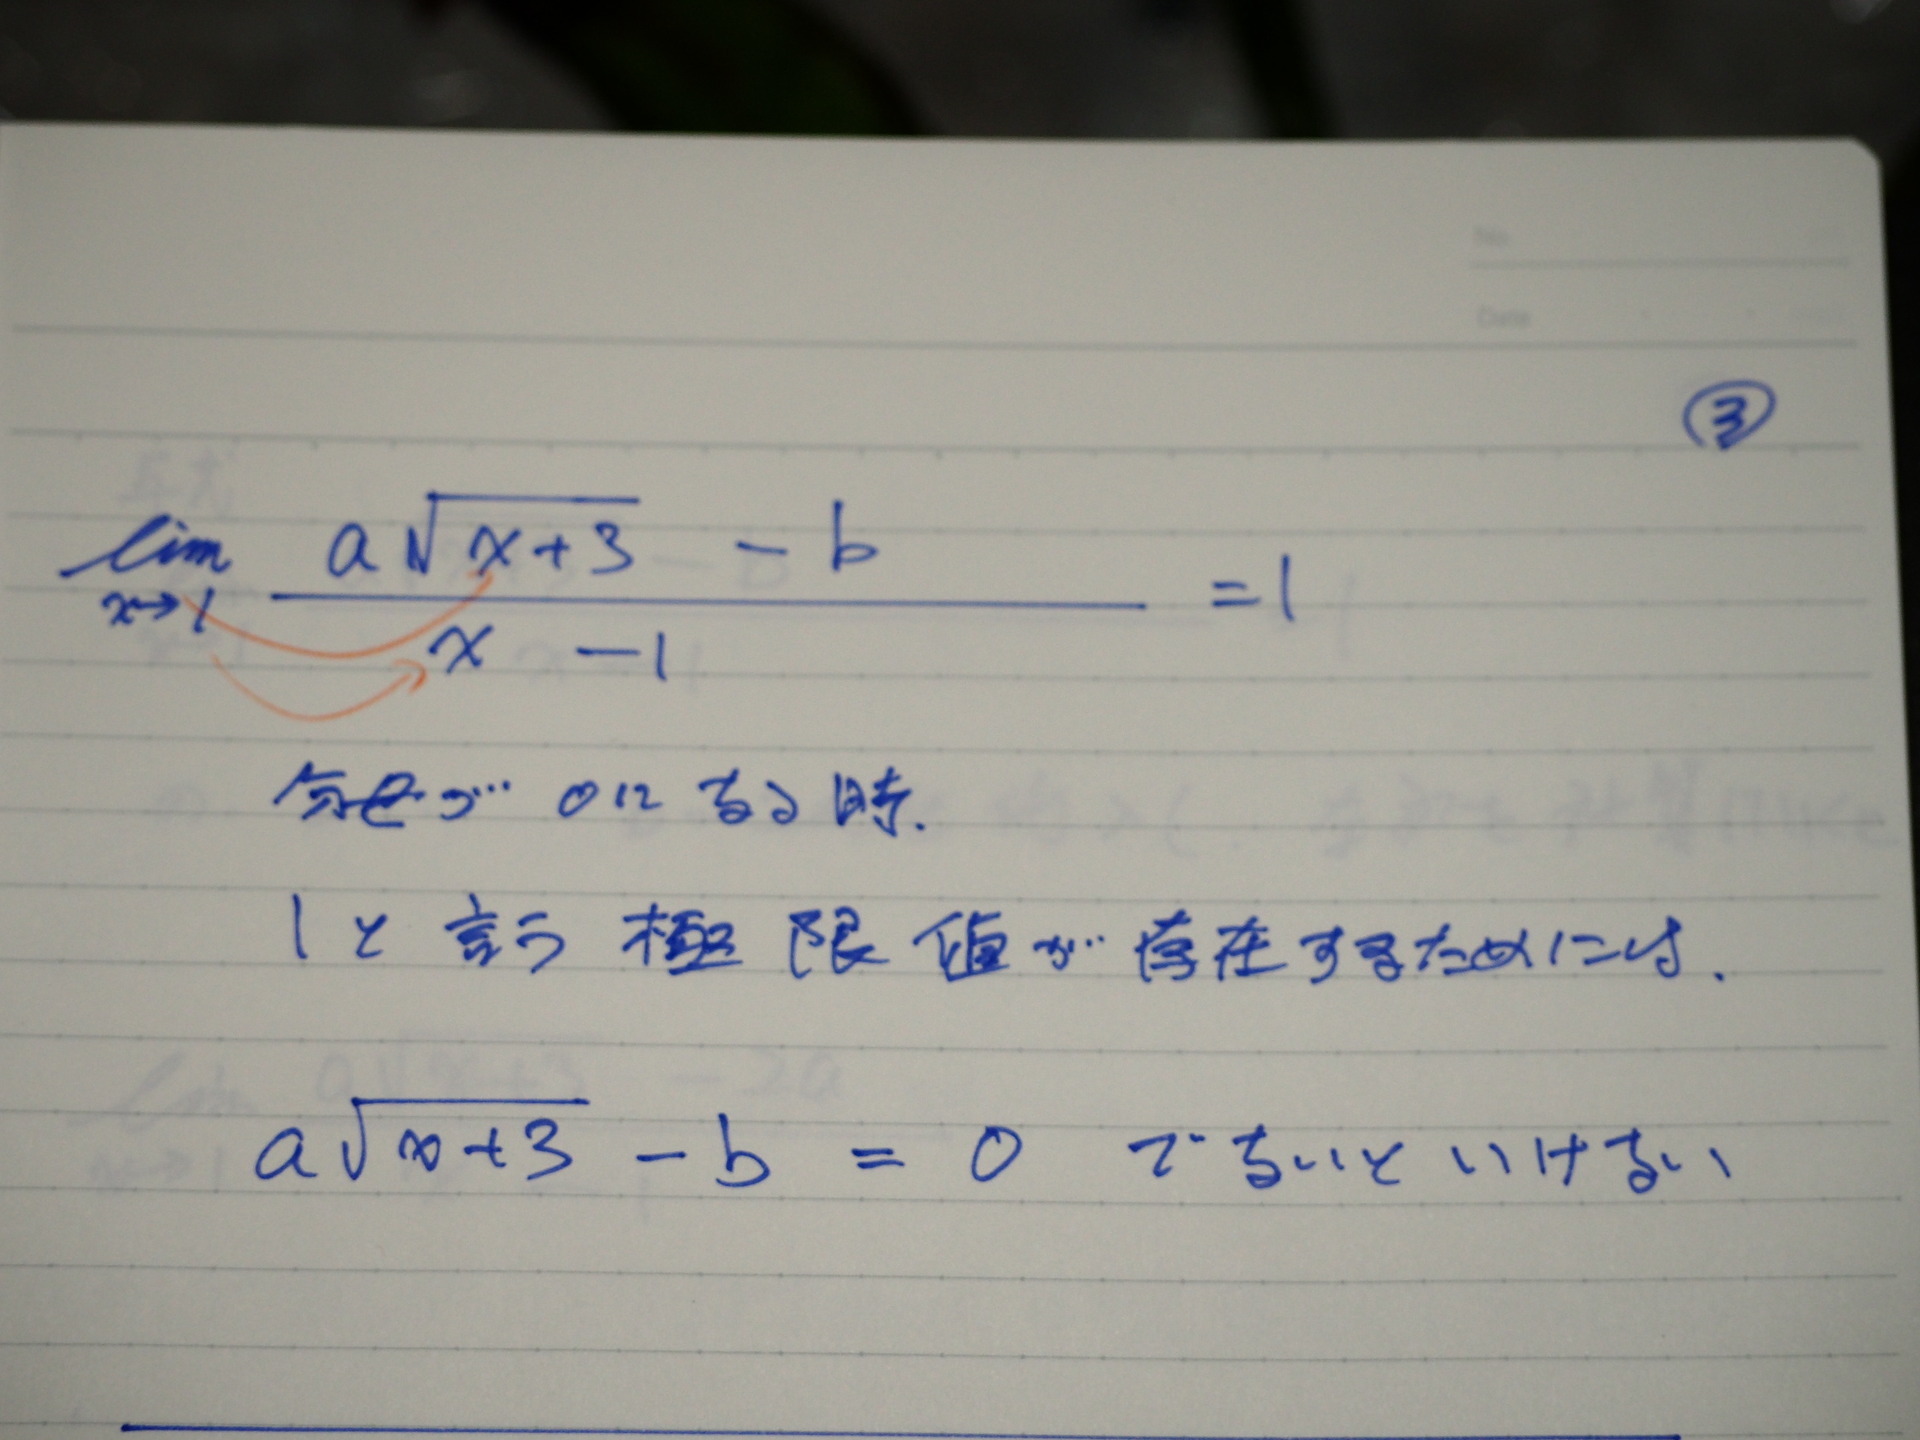 No.
Date
③
lim a√x+3 - b
x→1 x - 1 = 1
分母が 0になる時.
1と言う極限値が存在するためには.
a√x+3 - b = 0 でないといけない